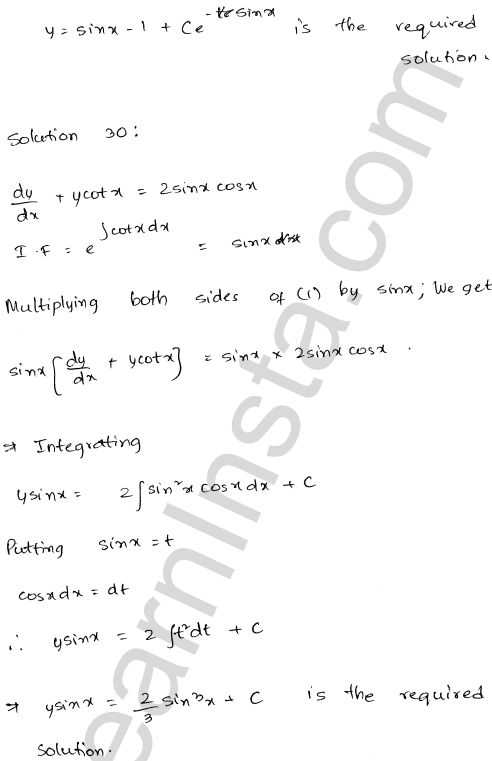 y = sinx - 1 + Ce^-sinx is the required
solution.
Solution 30:
dy/dx + ycotx = 2sinx cosx
I.F = e^∫cotxdx = sinx
Multiplying both sides of (1) by sinx; We get
sinx[dy/dx + ycotx] = sinx × 2sinx cosx .
⇒ Integrating
ysinx = 2∫sin²x cosx dx + C
Putting sinx = t
cosxdx = dt
∴ ysinx = 2∫t²dt + C
⇒ ysinx = 2/3 sin³x + C is the required
solution.
earnInsta.com